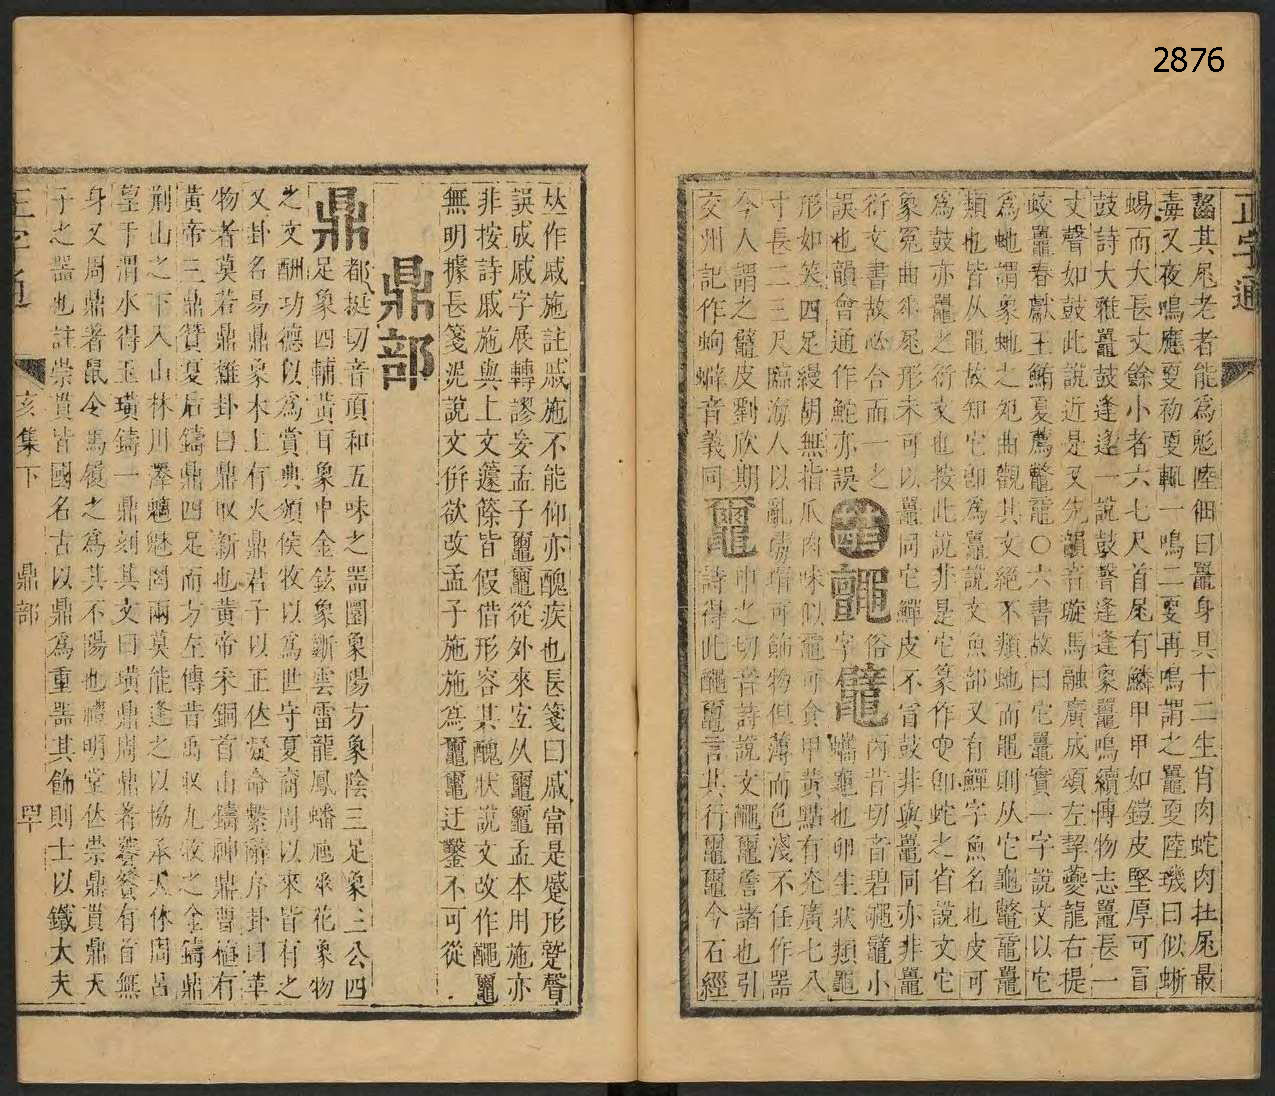 2876
正字通
齧其尾老者能爲魅陸佃曰鼉身具十二生肖肉蛇肉拄尾最
毒又夜鳴應更初更輒一鳴二更再鳴謂之鼉更陸璣曰似蜥
蜴而大長丈餘小者六七尺首尾有鱗甲甲如鎧皮堅厚可冒
鼓詩大雅鼉鼓逢逢一說鼓聲逢逢象鼉鳴續博物志鼉長一
丈聲如鼓此說近是又先韻音璇馬融廣成頌左挈夔龍右提
蛟鼉春獻王鮪夏薦鼈黿○六書故曰它鼉實一字說文以它
爲虵謂象虵之宛曲觀其文絕不類虵而黽則从它龜鼈黿鼉
類也皆从黽故知它卽爲鼉說文魚部又有鱓字魚名也皮可
爲鼓亦鼉之衍文也按此說非是它篆作卽蛇之省說文它
象冤曲垂尾形未可以鼉同它鱓皮不冒鼓非與鼉同亦非鼉
衍文書故必合而一之
誤也韻會通作鮀亦誤 俗字 丙昔切音碧鼊小
形如笑四足縵胡無指爪肉味似黿可食甲黃點有光廣七八
寸長二三尺臨海人以亂瑇瑁可飾物但薄而色淺不任作器
今人謂之鼊皮劉欣期 中之切音詩說文 詹諸也引
交州記作蚼 音義同 詩得此 言其行 今石經
夶作戚施註戚施不能仰亦醜疾也長箋曰戚當是 形 聲
誤成戚字展轉謬妄孟子 從外來宜从 孟本用施亦
非按詩戚施與上文籧篨皆假借形容其醜狀說文改作
無明據長箋泥說文併欲改孟子施施爲 迂鑿不可從
鼎部
鼎 都挺切音頂和五味之器圜象陽方象陰三足象三公四
足象四輔黃耳象中金鉉象斷雲雷龍鳳蟠虺垂花象物
之文酬功德以爲賞典頒侯牧以爲世守夏商周以來皆有之
又卦名易鼎象木上有火鼎君子以正位凝命繫辭序卦曰革
物者莫若鼎雜卦曰鼎取新也黃帝采銅首山鑄神鼎曹植有
黃帝三鼎贊夏后鑄鼎四足而方左傳昔禹收九牧之金鑄鼎
荆山之下入山林川澤魑魅罔兩莫能逢之以協承天休周呂
望于渭水得玉璜鑄一鼎刻其文曰璜鼎周鼎著饕餮有首無
身又周鼎著鼠令馬履之爲其不陽也禮明堂位崇鼎貫鼎天
子之器也註崇貫皆國名古以鼎爲重器其飾則士以鐵大夫
正字通 亥集下 鼎部